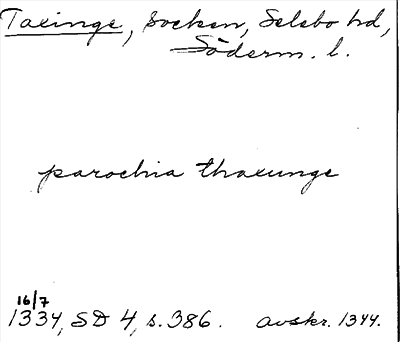 Taxinge, socken, Selebo hd,
Söderm. l.
parochia thaxunge
16/7
1334, SD 4, s. 386. avskr. 1344.